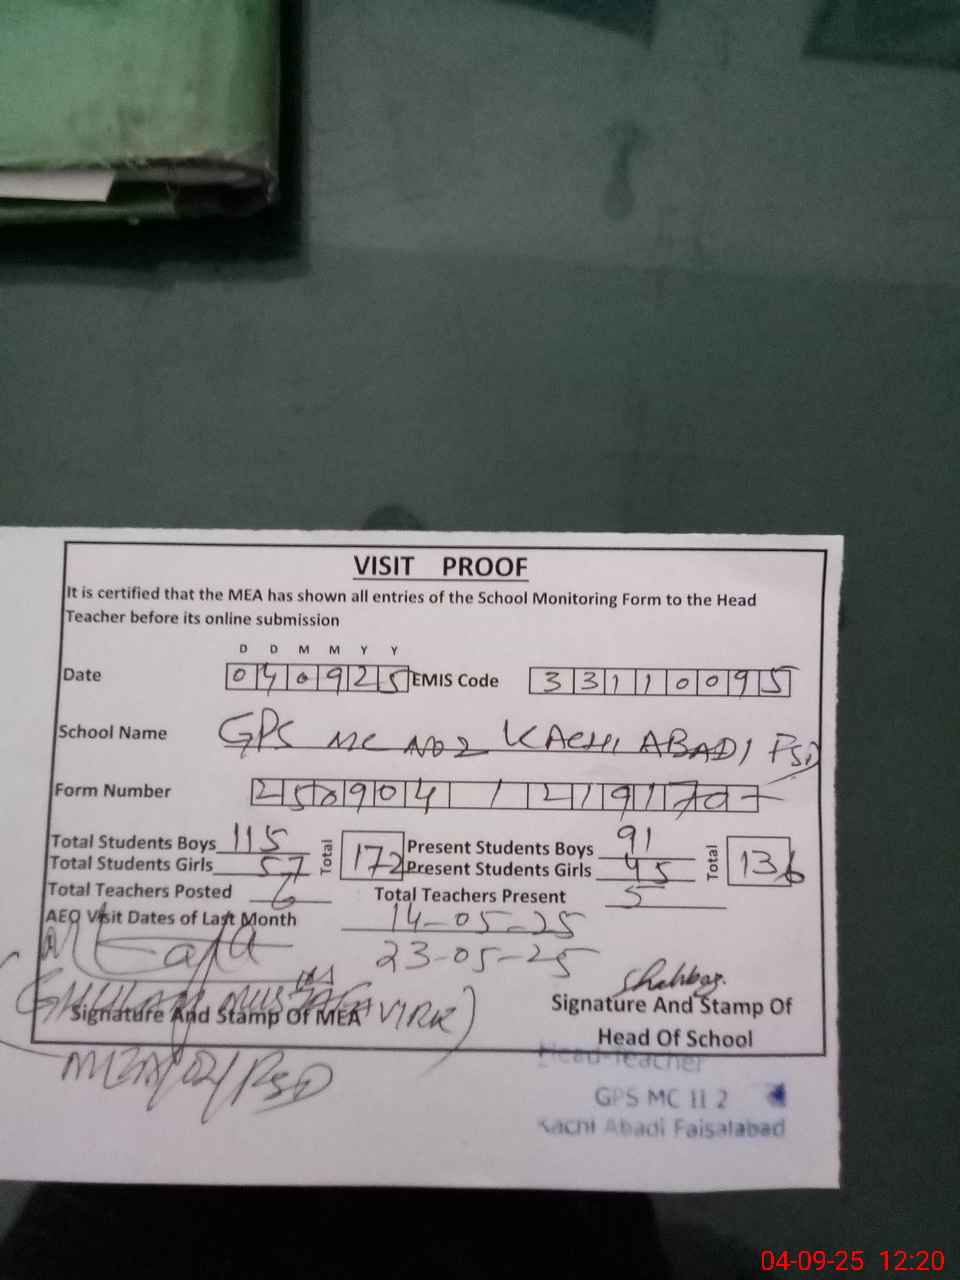 VISIT PROOF
It is certified that the MEA has shown all entries of the School Monitoring Form to the Head
Teacher before its online submission
D D M M Y Y
Date 040925 EMIS Code 33110095
School Name GPS MC NO 2 KACHI ABADI FSD
Form Number 250904
Total Students Boys 115 Total 172 Present Students Boys 91 Total 136
Total Students Girls 57 Present Students Girls 45
Total Teachers Posted 6 Total Teachers Present 5
AEO Visit Dates of Last Month 14-05-25
23-05-25
Shahbaz
(GHULAM MUSTAFA VIRK)
Signature And Stamp Of MEA
Signature And Stamp Of
Head Of School
Head-Teacher
GPS MC II 2
Kachi Abadi Faisalabad
04-09-25 12:20